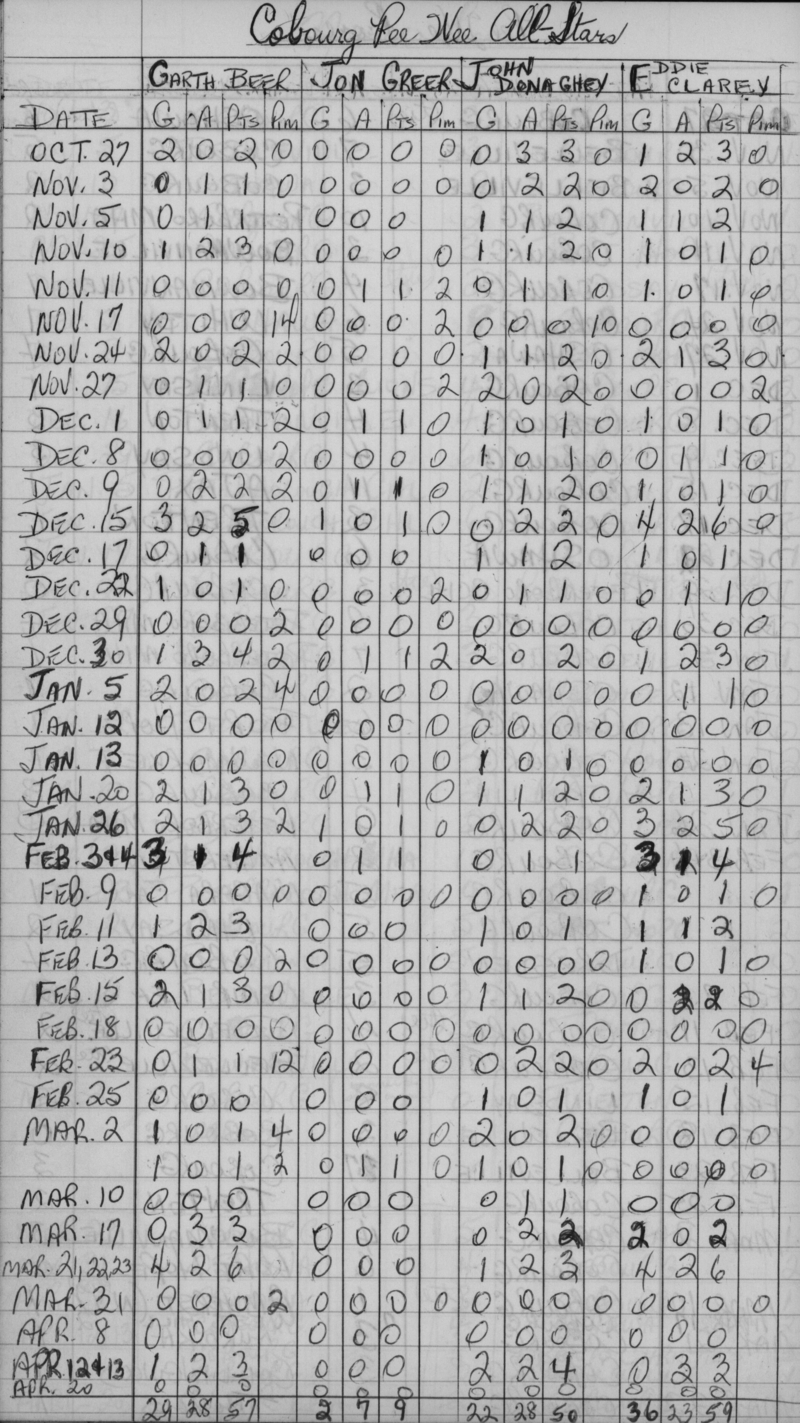 Cobourg Pee Wee All-Stars
GARTH BEER JON GREER JOHN DONAGHEY EDDIE CLAREY
DATE G A PTS Pim G A PTS Pim G A PTS Pim G A PTS Pim
OCT. 27 2 0 2 0 0 0 0 0 0 3 3 0 1 2 3 0
NOV. 3 0 1 1 0 0 0 0 0 0 2 2 0 2 0 2 0
NOV. 5 0 1 1 0 0 0 1 1 2 1 1 2
NOV. 10 1 2 3 0 0 0 0 0 1 1 2 0 1 0 1 0
NOV. 11 0 0 0 0 0 1 1 2 0 1 1 0 1 0 1 0
NOV. 17 0 0 0 14 0 0 0 2 0 0 0 10 0 0 0 0
NOV. 24 2 0 2 2 0 0 0 0 1 1 2 0 2 1 3 0
NOV. 27 0 1 1 0 0 0 0 2 2 0 2 0 0 0 0 2
DEC. 1 0 1 1 2 0 1 1 0 1 0 1 0 1 0 1 0
DEC. 8 0 0 0 2 0 0 0 0 1 0 1 0 0 1 1 0
DEC. 9 0 2 2 2 0 1 1 0 1 1 2 0 1 0 1 0
DEC. 15 3 2 5 0 1 0 1 0 0 2 2 0 4 2 6 0
DEC. 17 0 1 1 0 0 0 1 1 2 1 0 1
DEC. 22 1 0 1 0 0 0 0 2 0 1 1 0 0 1 1 0
DEC. 29 0 0 0 2 0 0 0 0 0 0 0 0 0 0 0 0
DEC. 30 1 3 4 2 0 1 1 2 2 0 2 0 1 2 3 0
JAN. 5 2 0 2 4 0 0 0 0 0 0 0 0 0 1 1 0
JAN. 12 0 0 0 0 0 0 0 0 0 0 0 0 0 0 0 0
JAN. 13 0 0 0 0 0 0 0 0 1 0 1 0 0 0 0 0
JAN. 20 2 1 3 0 0 1 1 0 1 1 2 0 2 1 3 0
JAN. 26 2 1 3 2 1 0 1 0 0 2 2 0 3 2 5 0
FEB. 3&4 3 1 4 0 1 1 0 1 1 3 1 4
FEB. 9 0 0 0 0 0 0 0 0 0 0 0 0 1 0 1 0
FEB. 11 1 2 3 0 0 0 1 0 1 1 1 2
FEB. 13 0 0 0 2 0 0 0 0 0 0 0 0 1 0 1 0
FEB. 15 2 1 3 0 0 0 0 0 1 1 2 0 0 2 2 0
FEB. 18 0 0 0 0 0 0 0 0 0 0 0 0 0 0 0 0
FEB. 23 0 1 1 12 0 0 0 0 0 2 2 0 2 0 2 4
FEB. 25 0 0 0 0 0 0 1 0 1 1 0 1
MAR. 2 1 0 1 4 0 0 0 0 2 0 2 0 0 0 0 0
1 0 1 2 0 1 1 0 1 0 1 0 0 0 0 0
MAR. 10 0 0 0 0 0 0 0 1 1 0 0 0
MAR. 17 0 3 3 0 0 0 0 2 2 2 0 2
MAR. 21,22,23 4 2 6 0 0 0 1 2 3 4 2 6
MAR. 31 0 0 0 2 0 0 0 0 0 0 0 0 0 0 0 0
APR. 8 0 0 0 0 0 0 0 0 0 0 0 0
APR. 12&13 1 2 3 0 0 0 2 2 4 0 3 3
APR. 20 0 0 0 0 0 0 0 0 0 0 0 0
29 28 57 2 7 9 22 28 50 36 23 59